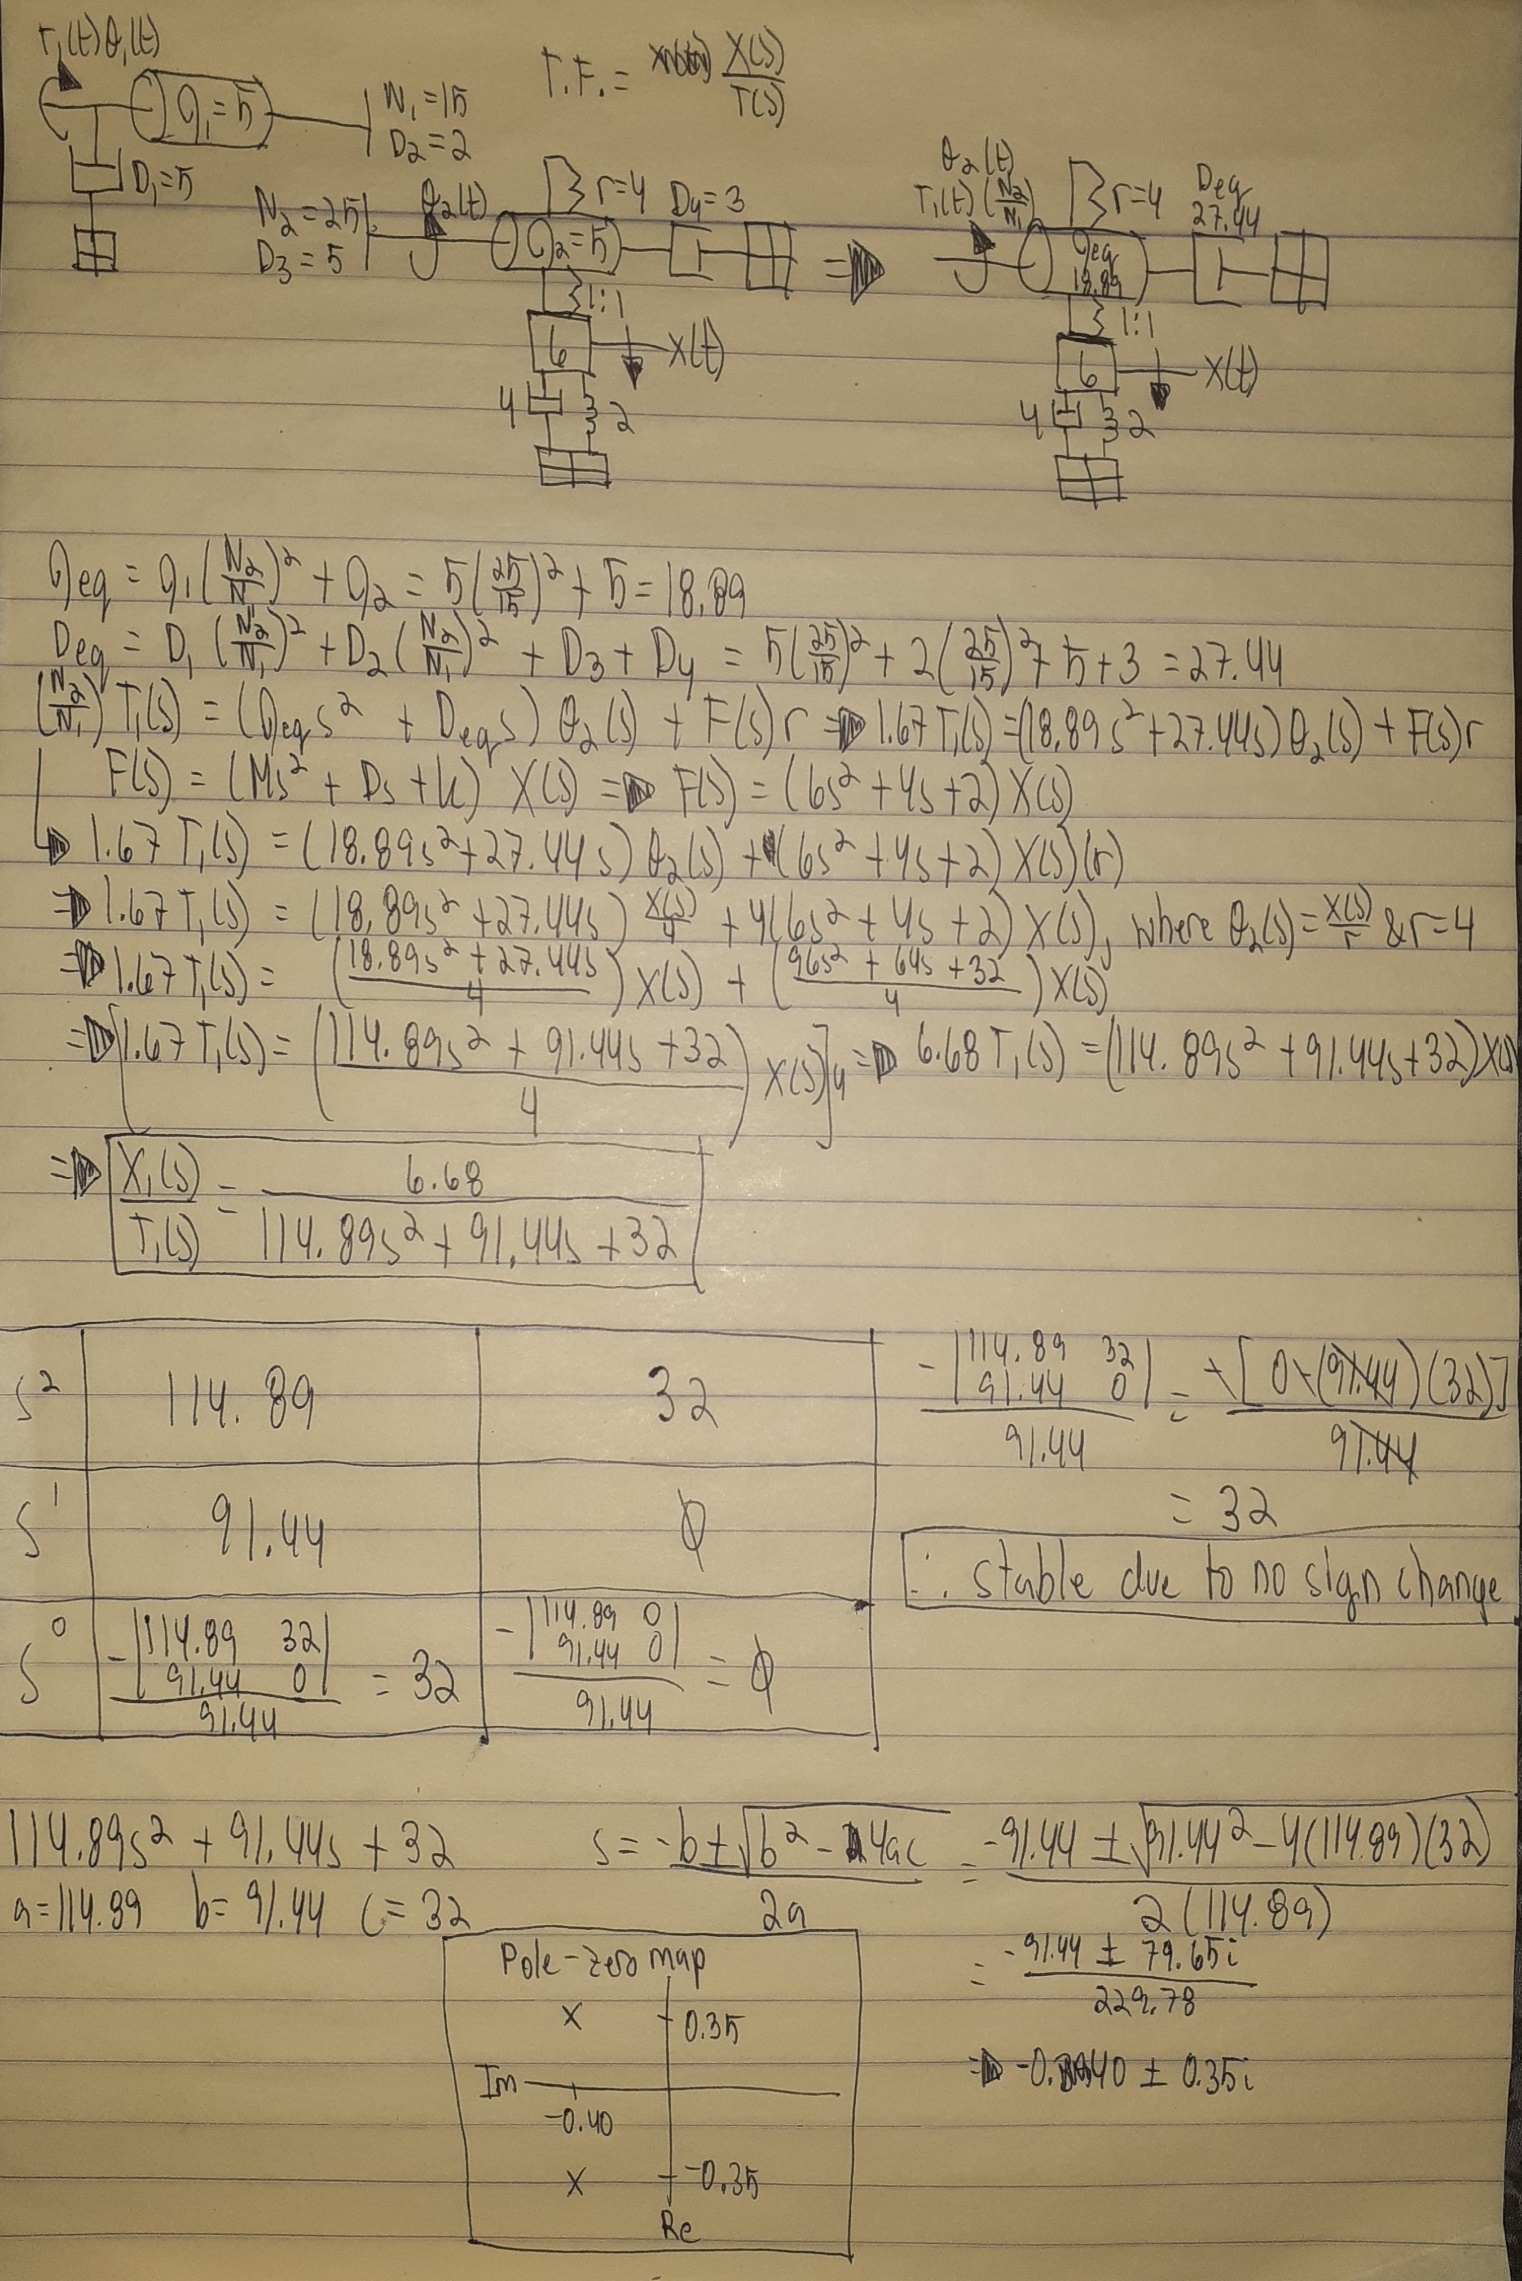 T₁(t) θ₁(t)
T.F. = X(s)/T(s)
J₁=5
N₁=15
D₂=2
D₁=5
N₂=25
D₃=5
θ₂(t)
r=4
D₄=3
J₂=5
1:1
6
X(t)
4
2
⇒
θ₂(t)
T₁(t)(N₂/N₁)
r=4
Deq
27.44
Jeq
18.89
1:1
6
X(t)
4
2
Jeq = J₁(N₂/N₁)² + J₂ = 5(25/15)² + 5 = 18.89
Deq = D₁(N₂/N₁)² + D₂(N₂/N₁)² + D₃ + D₄ = 5(25/15)² + 2(25/15)² + 5 + 3 = 27.44
(N₂/N₁) T₁(s) = (Jeq s² + Deq s) θ₂(s) + F(s)r ⇒ 1.67 T₁(s) = (18.89s² + 27.44s) θ₂(s) + F(s)r
F(s) = (Ms² + Ds + k) X(s) ⇒ F(s) = (6s² + 4s + 2) X(s)
→ 1.67 T₁(s) = (18.89s² + 27.44s) θ₂(s) + (6s² + 4s + 2) X(s)(r)
⇒ 1.67 T₁(s) = (18.89s² + 27.44s) X(s)/4 + 4(6s² + 4s + 2) X(s), where θ₂(s) = X(s)/r & r=4
⇒ 1.67 T₁(s) = ((18.89s² + 27.44s)/4) X(s) + ((96s² + 64s + 32)/4) X(s)
⇒ [1.67 T₁(s) = ((114.89s² + 91.44s + 32)/4) X(s)]4 ⇒ 6.68 T₁(s) = (114.89s² + 91.44s + 32) X(s)
⇒ X₁(s)/T₁(s) = 6.68/(114.89s² + 91.44s + 32)
s² 114.89 32
s¹ 91.44 0
s⁰ -|114.89 32; 91.44 0|/91.44 = 32 -|114.89 0; 91.44 0|/91.44 = 0
-|114.89 32; 91.44 0|/91.44 = +[0+(91.44)(32)]/91.44
= 32
∴ stable due to no sign change
114.89s² + 91.44s + 32
a=114.89 b=91.44 c=32
s = (-b±√(b²-4ac))/2a = (-91.44 ± √(91.44²-4(114.89)(32)))/2(114.89)
= (-91.44 ± 79.65i)/229.78
⇒ -0.40 ± 0.35i
Pole-zero map
x
0.35
Im
-0.40
x
-0.35
Re